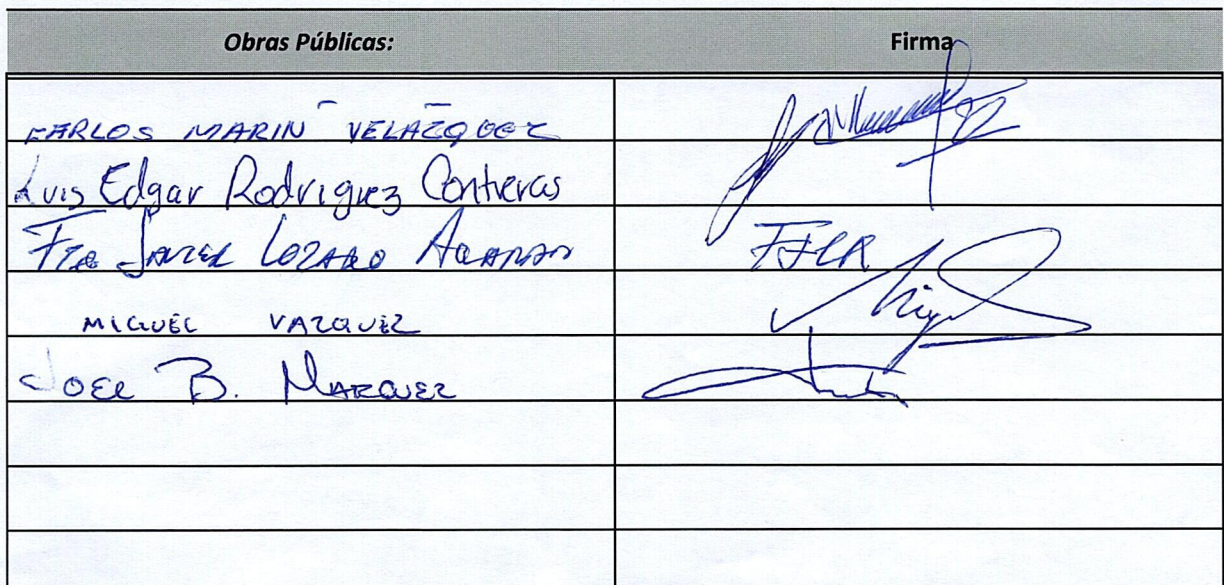 Obras Públicas: Firma
CARLOS MARIN VELAZQUEZ
Luis Edgar Rodriguez Contreras
LOZANO FJLR
MIGUEL VAZQUEZ Migu
JOEL B. MARQUEZ